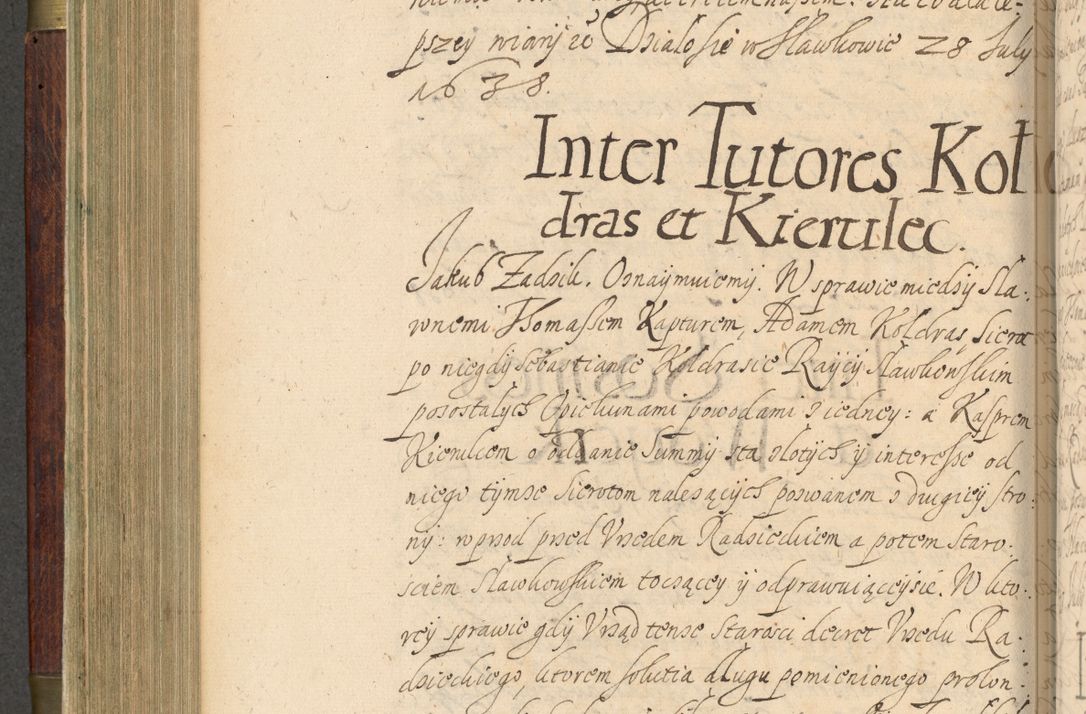 pszey wiary że Dzialo sie w Slawkowie 28 July
1638.
Inter Tutores Koł
dras et Kierulec.
Jakub Zadzik. Oznaymuiemy. W sprawie miedzy Sla-
wnemi Thomaszem Kapturem, Adamem Koldrąs, Sierot
po niegdy Sebastianie Koldrasie Raycy Slawkowskim
pozostalych Opiekunami powodami z iedney: a Kasprem
Kierulcem o oddanie Summy sta zlotych y interesse od
niego tymze Sierotom nalezących pozwanem z drugiey stro-
ny: wprzod przed Vrzedem Radzieckiem a potem Staro-
sciem Slawkowskiem toczącey y odprawuiąceysie. W kto-
rey sprawie gdy Vrząd tenze Starosci decret Vrzedu Ra-
dzieckiego, ktorem solutia dlugu pomienionego prolon-